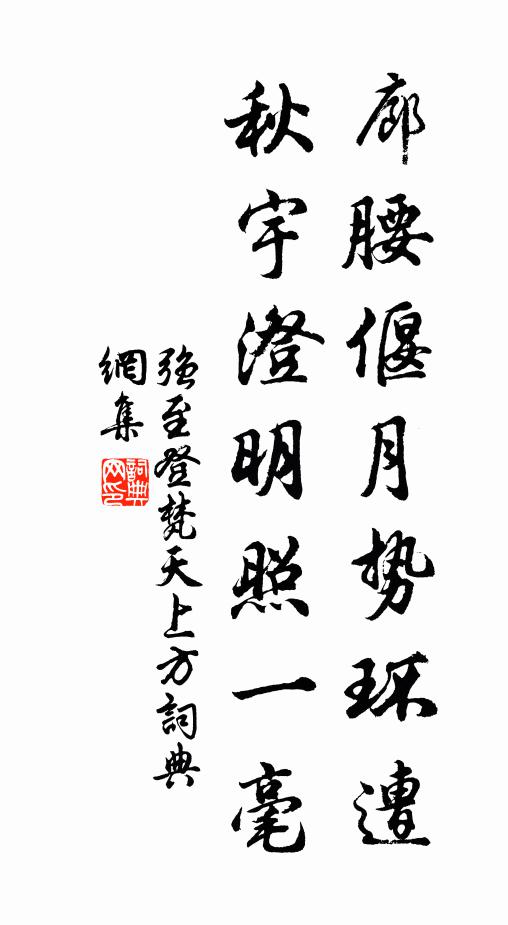 廊腰偃月势环遭
秋宇澄明照一毫
强至登梵天上方詞典
網集
詞典网印